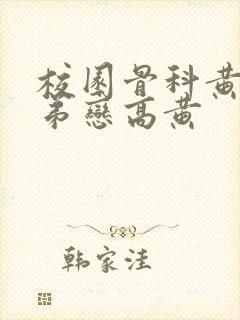 校園骨科黄
弟戀高黄
韩家洼